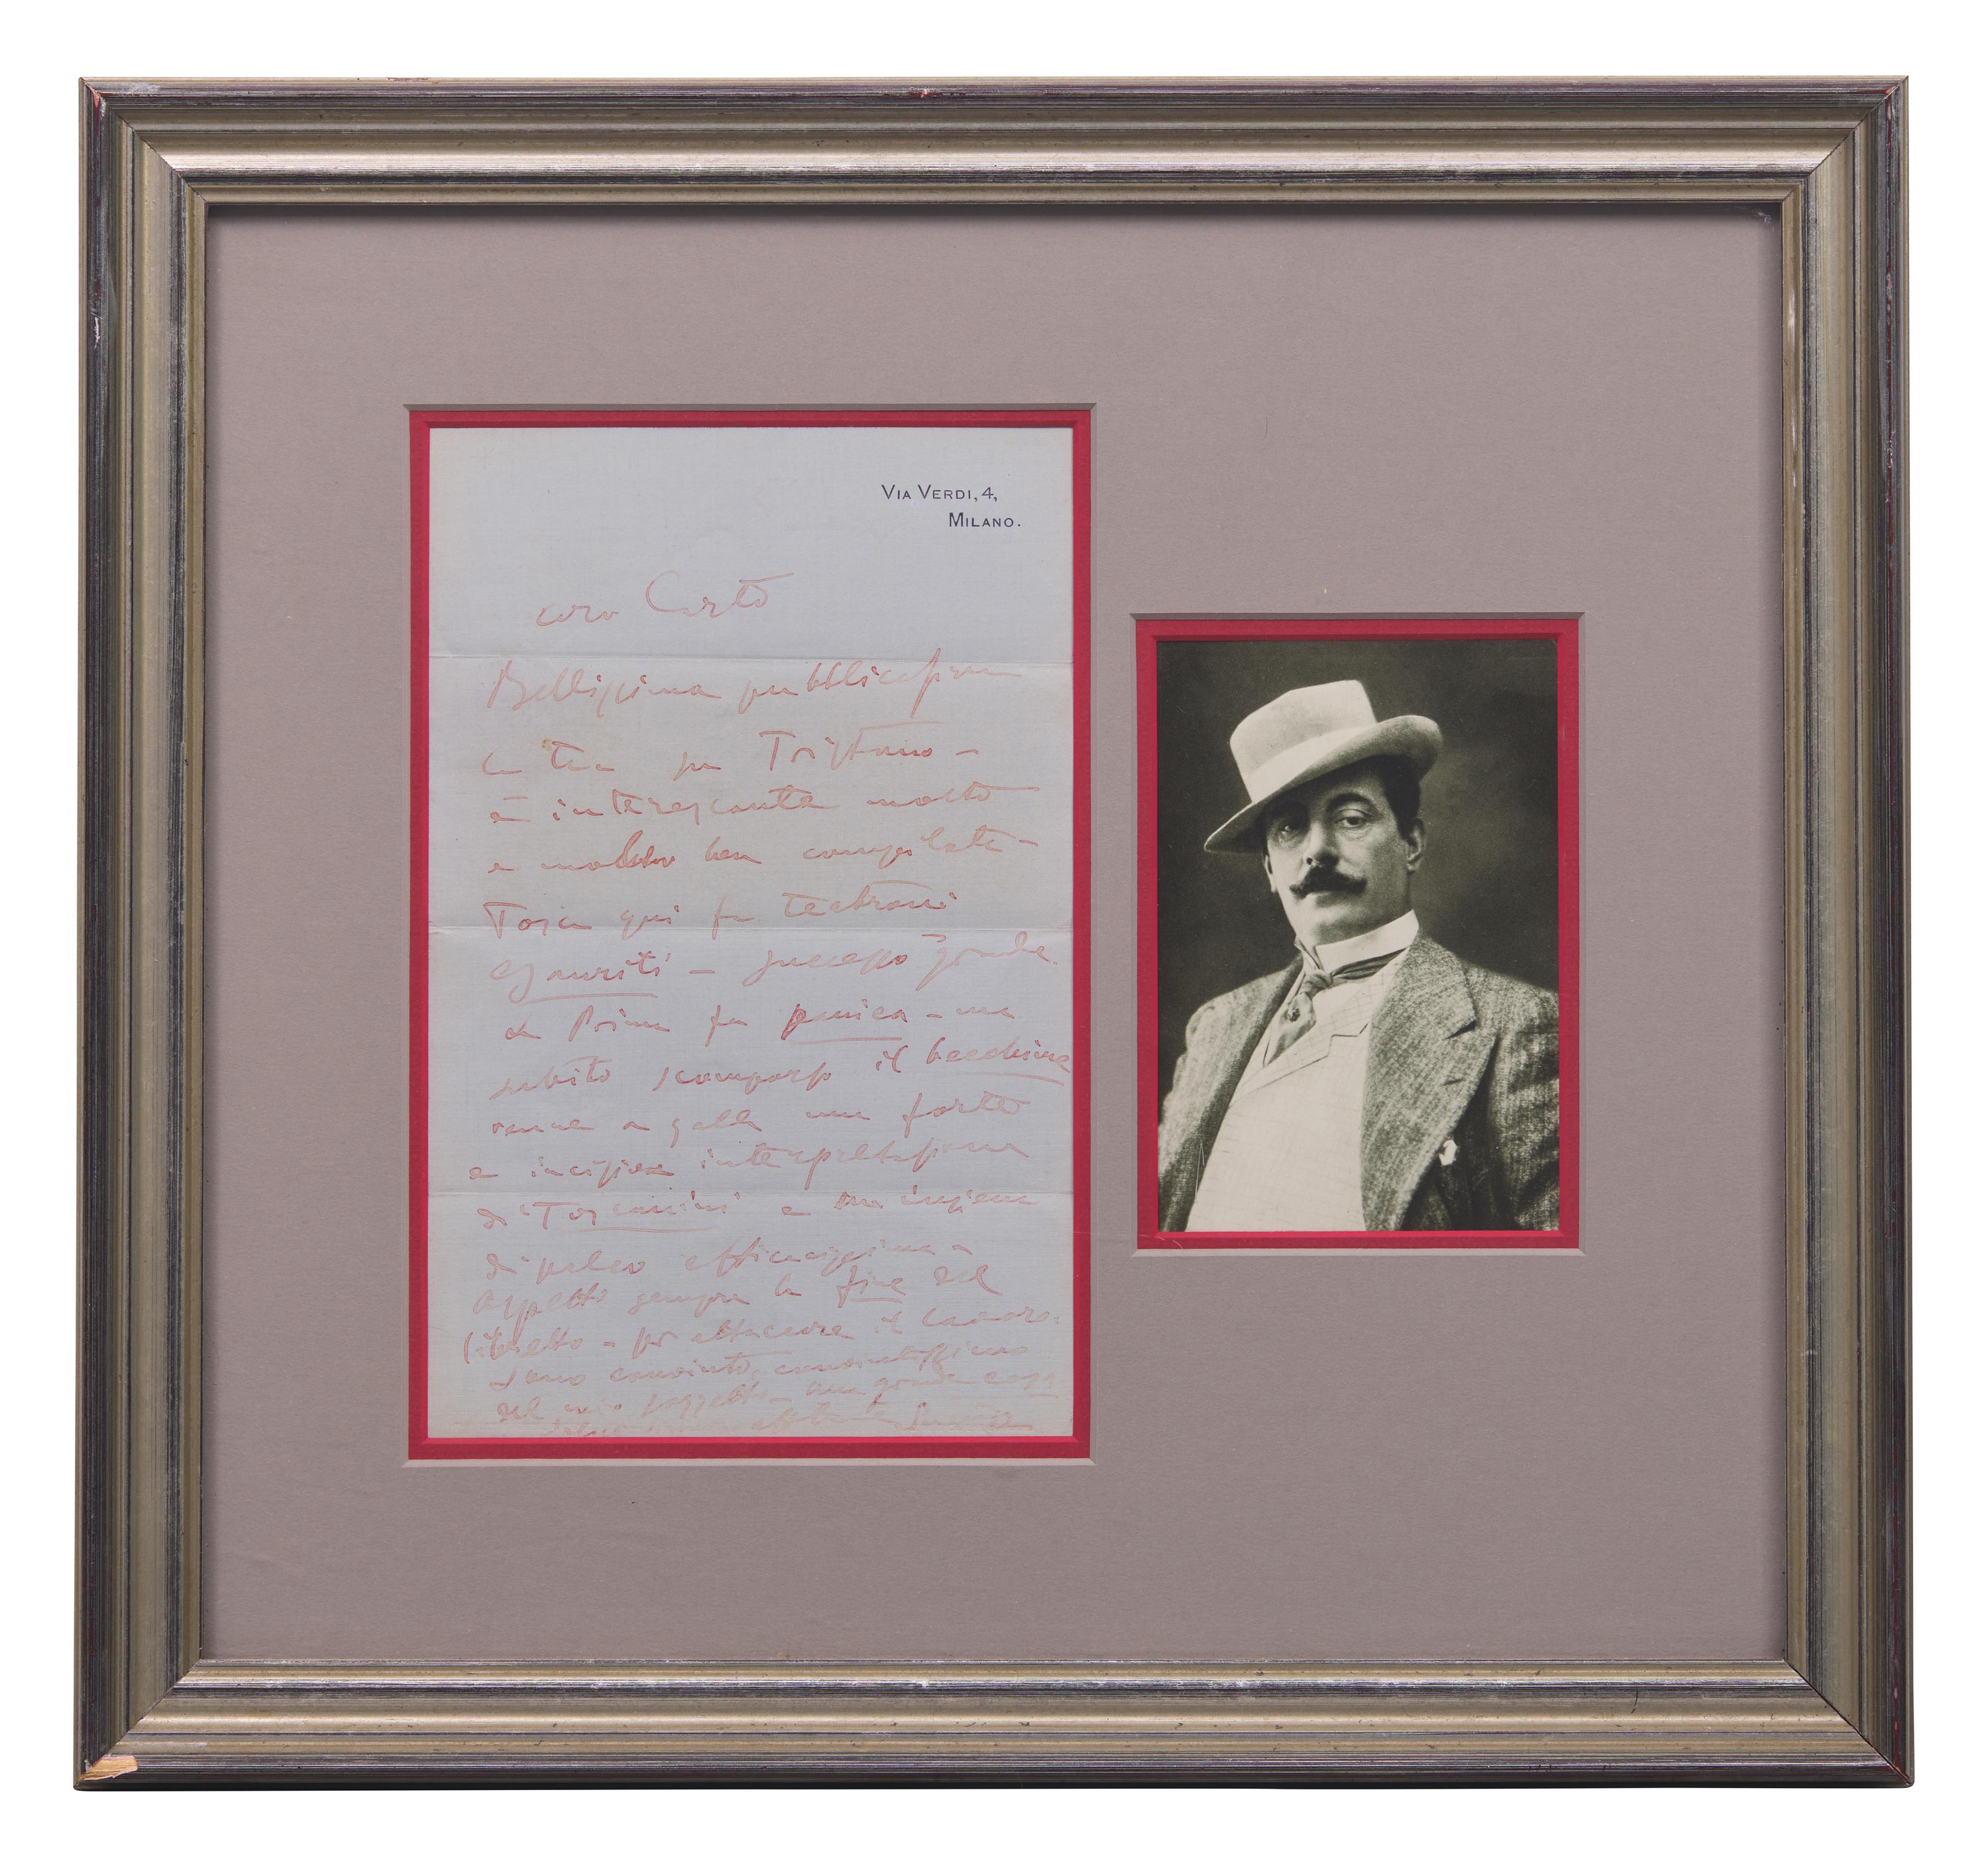 VIA VERDI, 4,
MILANO.
caro
Bellissima pubblicazione
per Tristano –
è interessante molto
e molto ben compilata –
Tosca qui fa teatroni
esauriti – successo grande.
La Prima fu panica – ma
subito scomparso il becchino
venne a galla una forte
e incisiva interpretazione
di Toscanini e un insieme
di palco efficacissimo –
Aspetto sempre la fine del
libretto – per attaccare il lavoro.
Sono convinto, convintissimo
del mio soggetto – una grande cosa